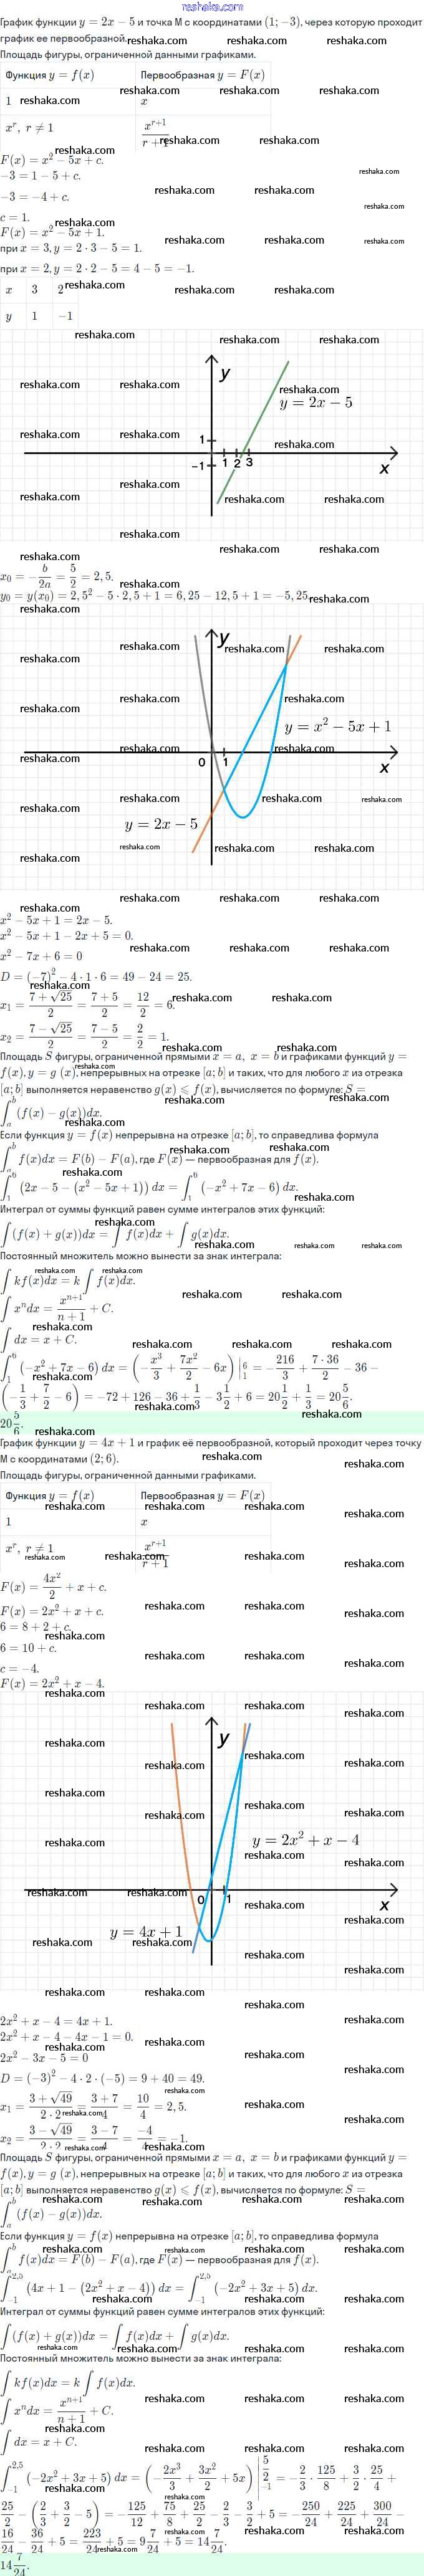 reshaka.com
График функции y = 2x − 5 и точка M с координатами (1; −3), через которую проходит
график ее первообразной.
Площадь фигуры, ограниченной данными графиками.
Функция y = f(x) Первообразная y = F(x)
1 x
x^r, r ≠ 1 x^{r+1}/(r + 1)
F(x) = x² − 5x + c.
−3 = 1 − 5 + c.
−3 = −4 + c.
c = 1.
F(x) = x² − 5x + 1.
при x = 3, y = 2 · 3 − 5 = 1.
при x = 2, y = 2 · 2 − 5 = 4 − 5 = −1.
x 3 2
y 1 −1
y
y = 2x − 5
1
−1
1 2 3
x
x₀ = −b/2a = 5/2 = 2,5.
y₀ = y(x₀) = 2,5² − 5 · 2,5 + 1 = 6,25 − 12,5 + 1 = −5,25.
y
y = x² − 5x + 1
0 1
x
y = 2x − 5
x² − 5x + 1 = 2x − 5.
x² − 5x + 1 − 2x + 5 = 0.
x² − 7x + 6 = 0
D = (−7)² − 4 · 1 · 6 = 49 − 24 = 25.
x₁ = (7 + √25)/2 = (7 + 5)/2 = 12/2 = 6.
x₂ = (7 − √25)/2 = (7 − 5)/2 = 2/2 = 1.
Площадь S фигуры, ограниченной прямыми x = a, x = b и графиками функций y =
f(x), y = g (x), непрерывных на отрезке [a; b] и таких, что для любого x из отрезка
[a; b] выполняется неравенство g(x) ⩽ f(x), вычисляется по формуле: S =
∫_a^b (f(x) − g(x))dx.
Если функция y = f(x) непрерывна на отрезке [a; b], то справедлива формула
∫_a^b f(x)dx = F(b) − F(a), где F(x) — первообразная для f(x).
∫_1^6 (2x − 5 − (x² − 5x + 1)) dx = ∫_1^6 (−x² + 7x − 6) dx.
Интеграл от суммы функций равен сумме интегралов этих функций:
∫ (f(x) + g(x))dx = ∫ f(x)dx + ∫ g(x)dx.
Постоянный множитель можно вынести за знак интеграла:
∫ kf(x)dx = k ∫ f(x)dx.
∫ xⁿdx = x^{n+1}/(n + 1) + C.
∫ dx = x + C.
∫_1^6 (−x² + 7x − 6) dx = (−x³/3 + 7x²/2 − 6x) |_1^6 = −216/3 + (7 · 36)/2 − 36 −
(−1/3 + 7/2 − 6) = −72 + 126 − 36 + 1/3 − 3 1/2 + 6 = 20 1/2 + 1/3 = 20 5/6.
20 5/6.
График функции y = 4x + 1 и график её первообразной, который проходит через точку
M с координатами (2; 6).
Площадь фигуры, ограниченной данными графиками.
Функция y = f(x) Первообразная y = F(x)
1 x
x^r, r ≠ 1 x^{r+1}/(r + 1)
F(x) = 4x²/2 + x + c.
F(x) = 2x² + x + c.
6 = 8 + 2 + c.
6 = 10 + c.
c = −4.
F(x) = 2x² + x − 4.
y
y = 2x² + x − 4
0 1
x
y = 4x + 1
2x² + x − 4 = 4x + 1.
2x² + x − 4 − 4x − 1 = 0.
2x² − 3x − 5 = 0
D = (−3)² − 4 · 2 · (−5) = 9 + 40 = 49.
x₁ = (3 + √49)/(2 · 2) = (3 + 7)/4 = 10/4 = 2,5.
x₂ = (3 − √49)/(2 · 2) = (3 − 7)/4 = −4/4 = −1.
Площадь S фигуры, ограниченной прямыми x = a, x = b и графиками функций y =
f(x), y = g (x), непрерывных на отрезке [a; b] и таких, что для любого x из отрезка
[a; b] выполняется неравенство g(x) ⩽ f(x), вычисляется по формуле: S =
∫_a^b (f(x) − g(x))dx.
Если функция y = f(x) непрерывна на отрезке [a; b], то справедлива формула
∫_a^b f(x)dx = F(b) − F(a), где F(x) — первообразная для f(x).
∫_{−1}^{2,5} (4x + 1 − (2x² + x − 4)) dx = ∫_{−1}^{2,5} (−2x² + 3x + 5) dx.
Интеграл от суммы функций равен сумме интегралов этих функций:
∫ (f(x) + g(x))dx = ∫ f(x)dx + ∫ g(x)dx.
Постоянный множитель можно вынести за знак интеграла:
∫ kf(x)dx = k ∫ f(x)dx.
∫ xⁿdx = x^{n+1}/(n + 1) + C.
∫ dx = x + C.
∫_{−1}^{2,5} (−2x² + 3x + 5) dx = (−2x³/3 + 3x²/2 + 5x) |_{−1}^{5/2} = −2/3 · 125/8 + 3/2 · 25/4 +
25/2 − (2/3 + 3/2 − 5) = −125/12 + 75/8 + 25/2 − 2/3 − 3/2 + 5 = −250/24 + 225/24 + 300/24 −
16/24 − 36/24 + 5 = 223/24 + 5 = 9 7/24 + 5 = 14 7/24.
14 7/24.